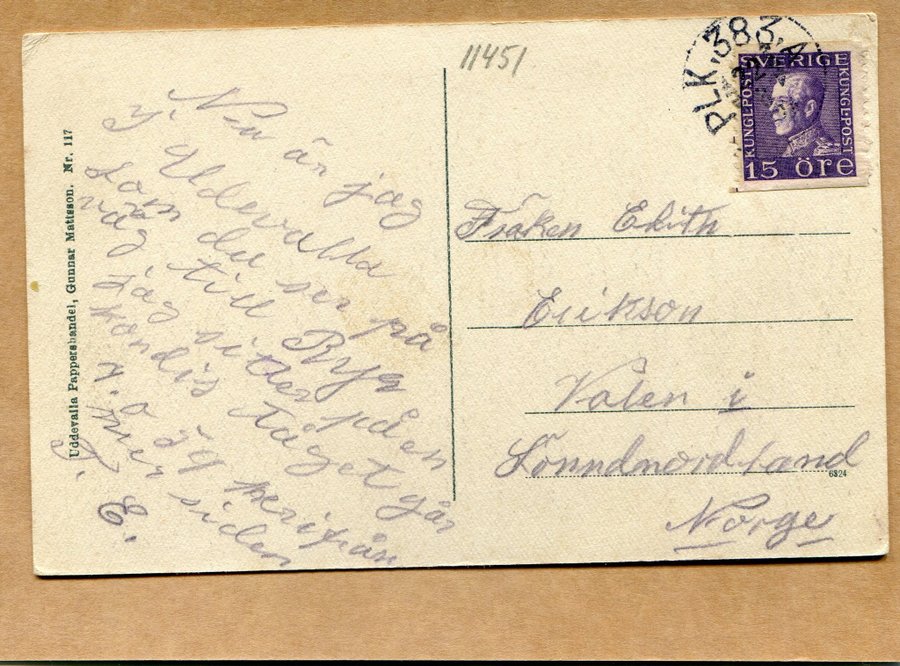 11451
PLK. 383. A
SVERIGE
KUNGL-POST
KUNGL-POST
15 ÖRE
Uddevalla Pappershandel, Gunnar Mattsson. Nr. 117
Nu är jag
I Uldevalla
som du ser på
väg till Ryr
jag sitter på en
kondis tåget går
herifrån
mer siden
J. E.
Fröken Edith
Erikson
Valen i
Sønndmordland
6824
Norge